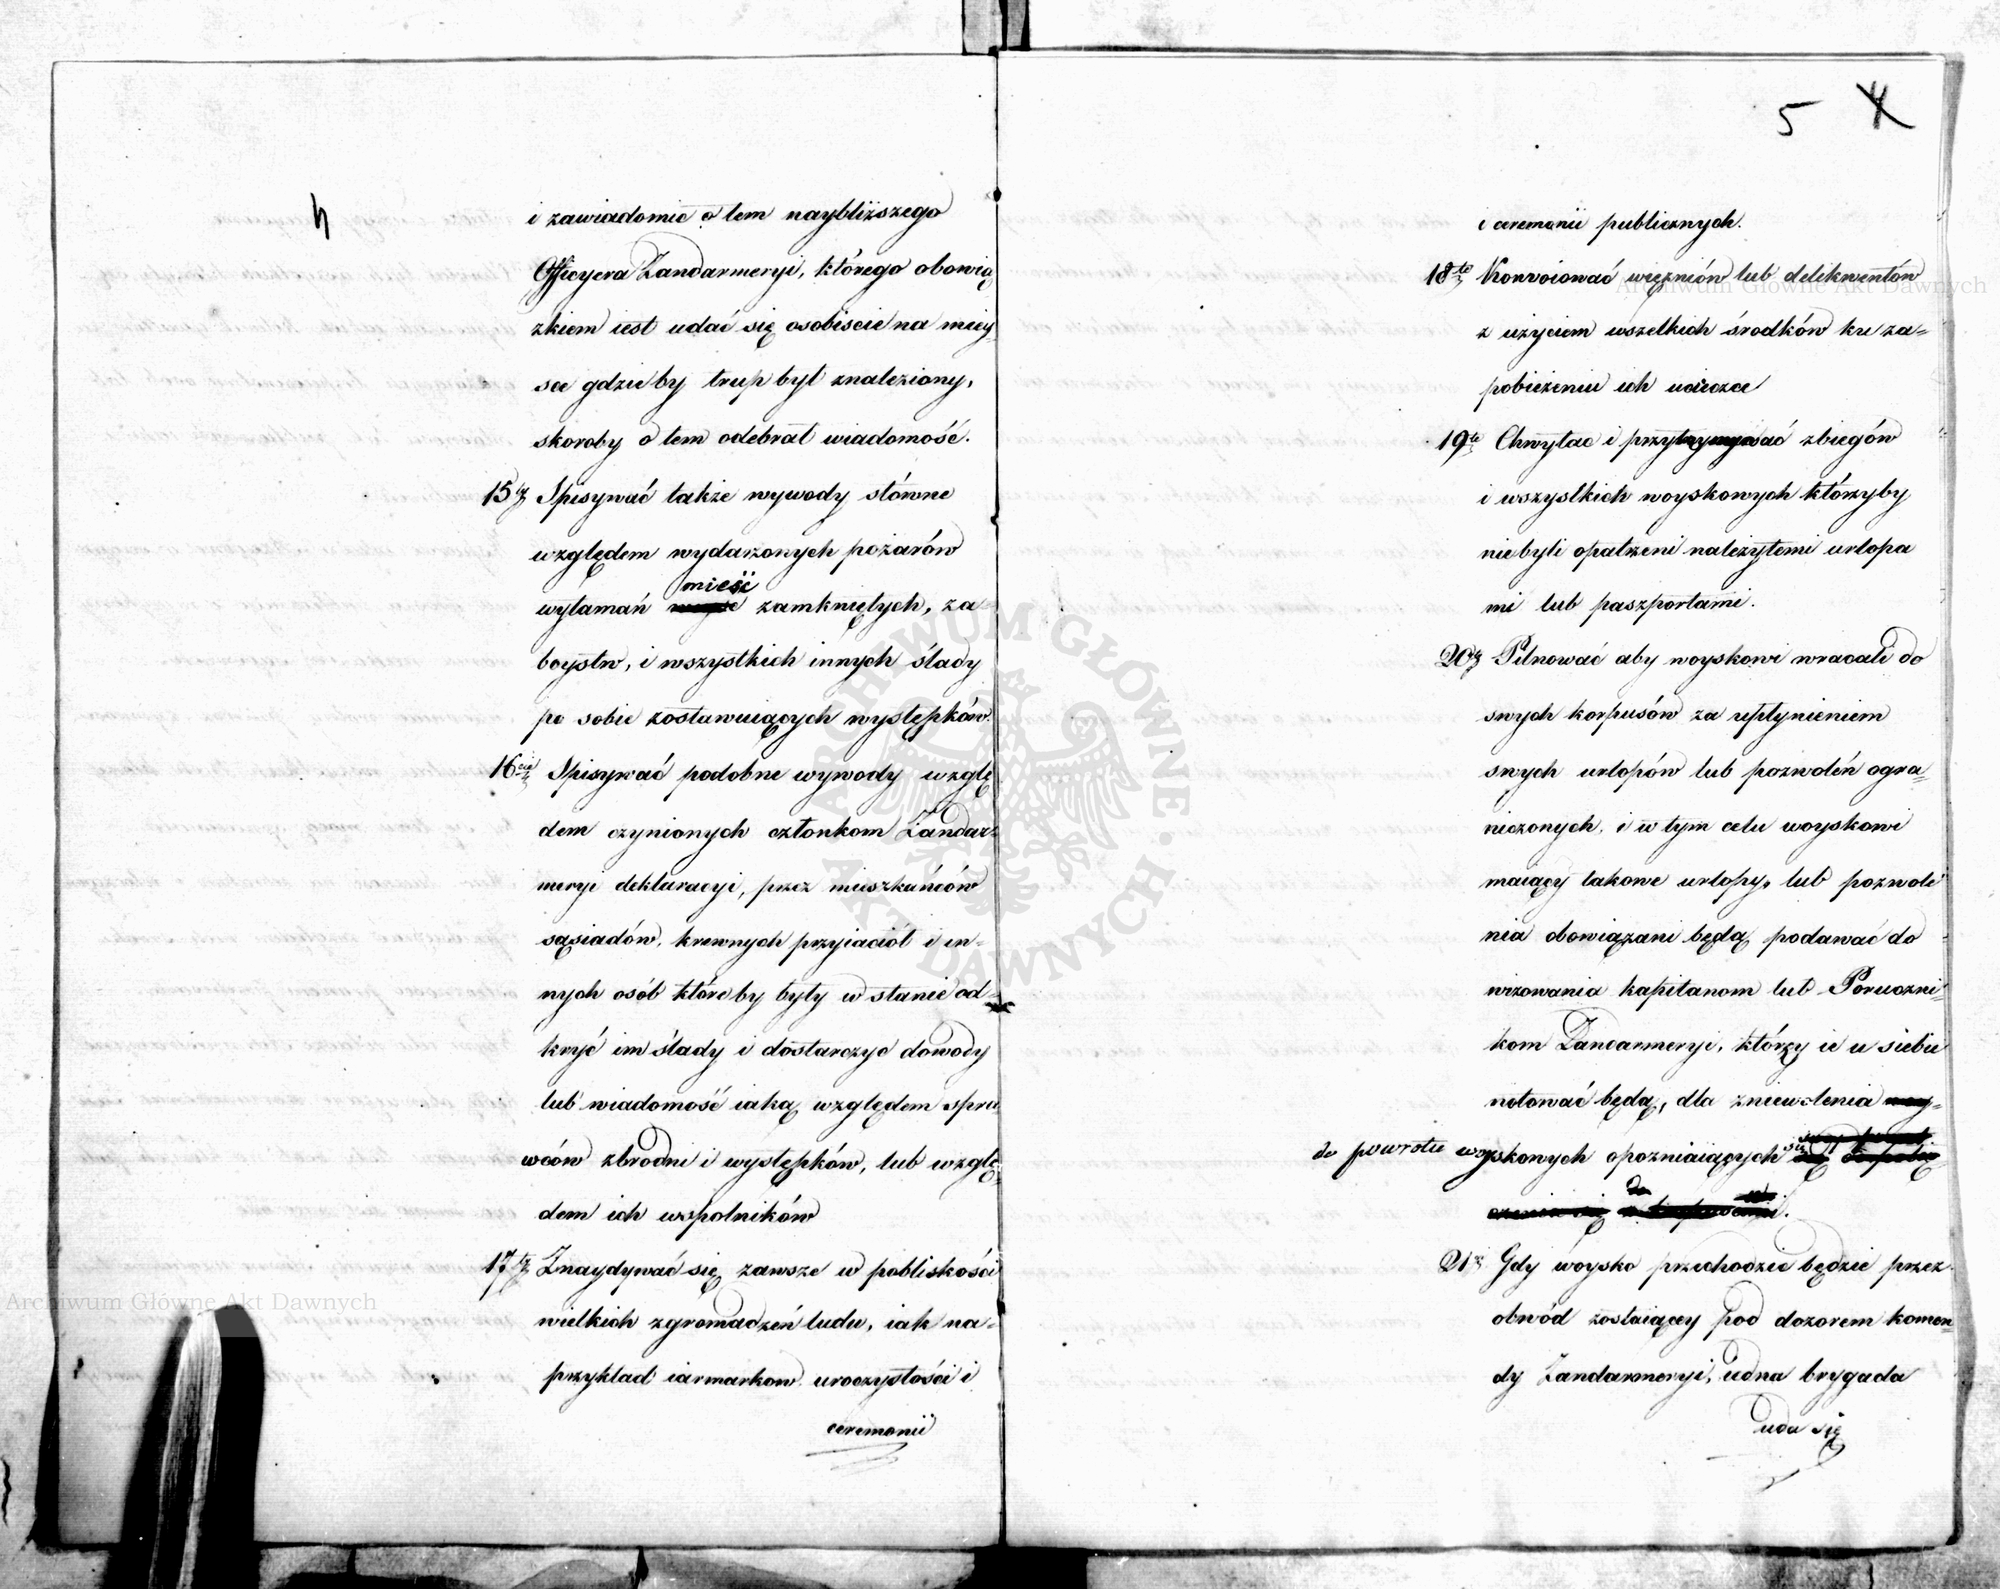 4
i zawiadomic o tem naybliższego
Officyera Żandarmeryi, którego obowią
zkiem iest udać się osobiscie na miey
sce gdzieby trup był znaleziony,
skoroby o tem odebrał wiadomość.
15ty Spisywać także wywody słówne
względem wydarzonych pożarów
mieśc
wyłamań zamkniętych, za-
boystw, i wszystkich innych ślady
po sobie zostawuiących występków.
16cie Spisywać podobne wywody wzglę
dem czynionych członkom Żandar-
meryi deklaracyi, przez mieszkańców
sąsiadów, krewnych przyiaciół i in-
nych osób któreby były w stanie od-
kryć im ślady i dostarczyc dowody
lub wiadomość iaką względem spra
wców zbrodni i występków, lub wzglę-
dem ich wspolników
17ty Znaydywać się zawsze w pobliskości
wielkich zgromadzeń ludu, iak na-
przykład iarmarkow uroczystości i
ceremonii
5 4
i ceremonii publicznych.
18te Konvoiować więzniów lub delikwentów
z użyciem wszelkich środków ku za-
pobieżeniu ich ucieczce
19te Chwytac i przytrzymywać zbiegów
i wszystkich woyskowych którzyby
niebyli opatrzeni należytemi urlopa
mi lub paszportami.
20ty Pilnować aby woyskowi wracali do
swych korpusów za upłynieniem
swych urlopów lub pozwoleń ogra-
niczonych, i w tym celu woyskowi
maiący takowe urlopy, lub pozwole
nia obowiązani będą podawać do
wizowania kapitanom lub Poruczni-
kom Żandarmeryi, którzy ie u siebie
notować będą, dla zniewolenia woy-
do powrotu woyskowych opozniaiących się
21e Gdy woysko przechodzić będzie przez
obwód zostaiący pod dozorem komen-
dy Żandarmeryi, iedna brygada
uda się
Archiwum Główne Akt Dawnych
Archiwum Główne Akt Dawnych
ARCHIWUM GŁÓWNE AKT DAWNYCH